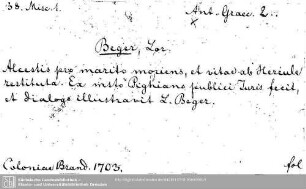 38. Misc. 1. Ant. Graec. 2..
Beger, Lor.
Alcestis pro marito moriens, et vitae ab Hercule
restituta. Ex msto Pighiano publici Juris fecit,
et dialogo illustravit L. Beger.
Coloniae Brand. 1703. fol
Sächsische Landesbibliothek -
Staats- und Universitätsbibliothek Dresden